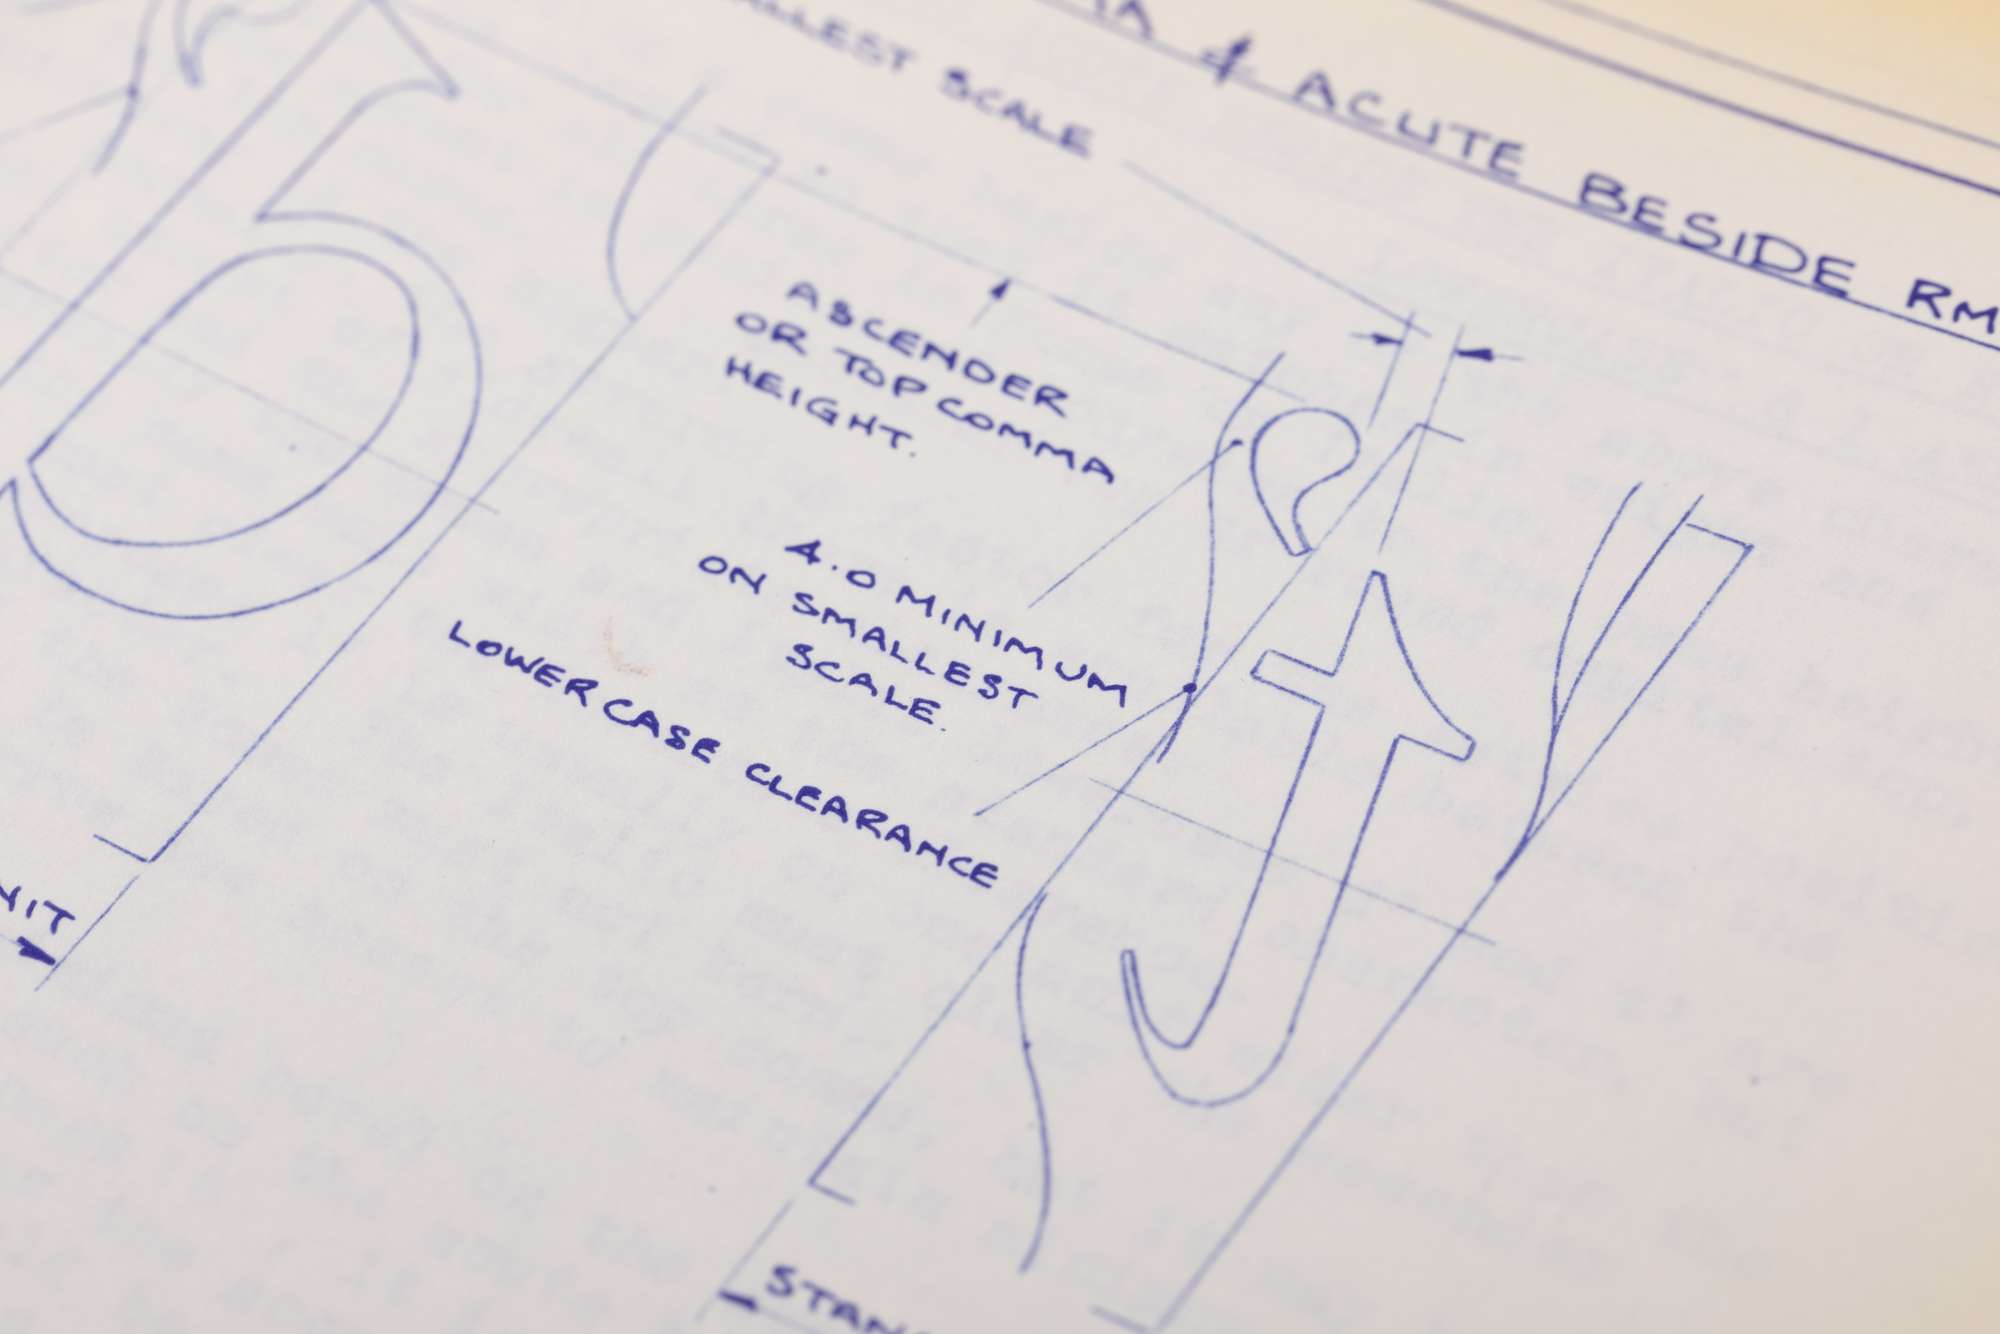 & ACUTE BESIDE RM
SMALLEST SCALE
ASCENDER
OR TOP COMMA
HEIGHT.
4.0 MINIMUM
ON SMALLEST
SCALE.
LOWER CASE CLEARANCE